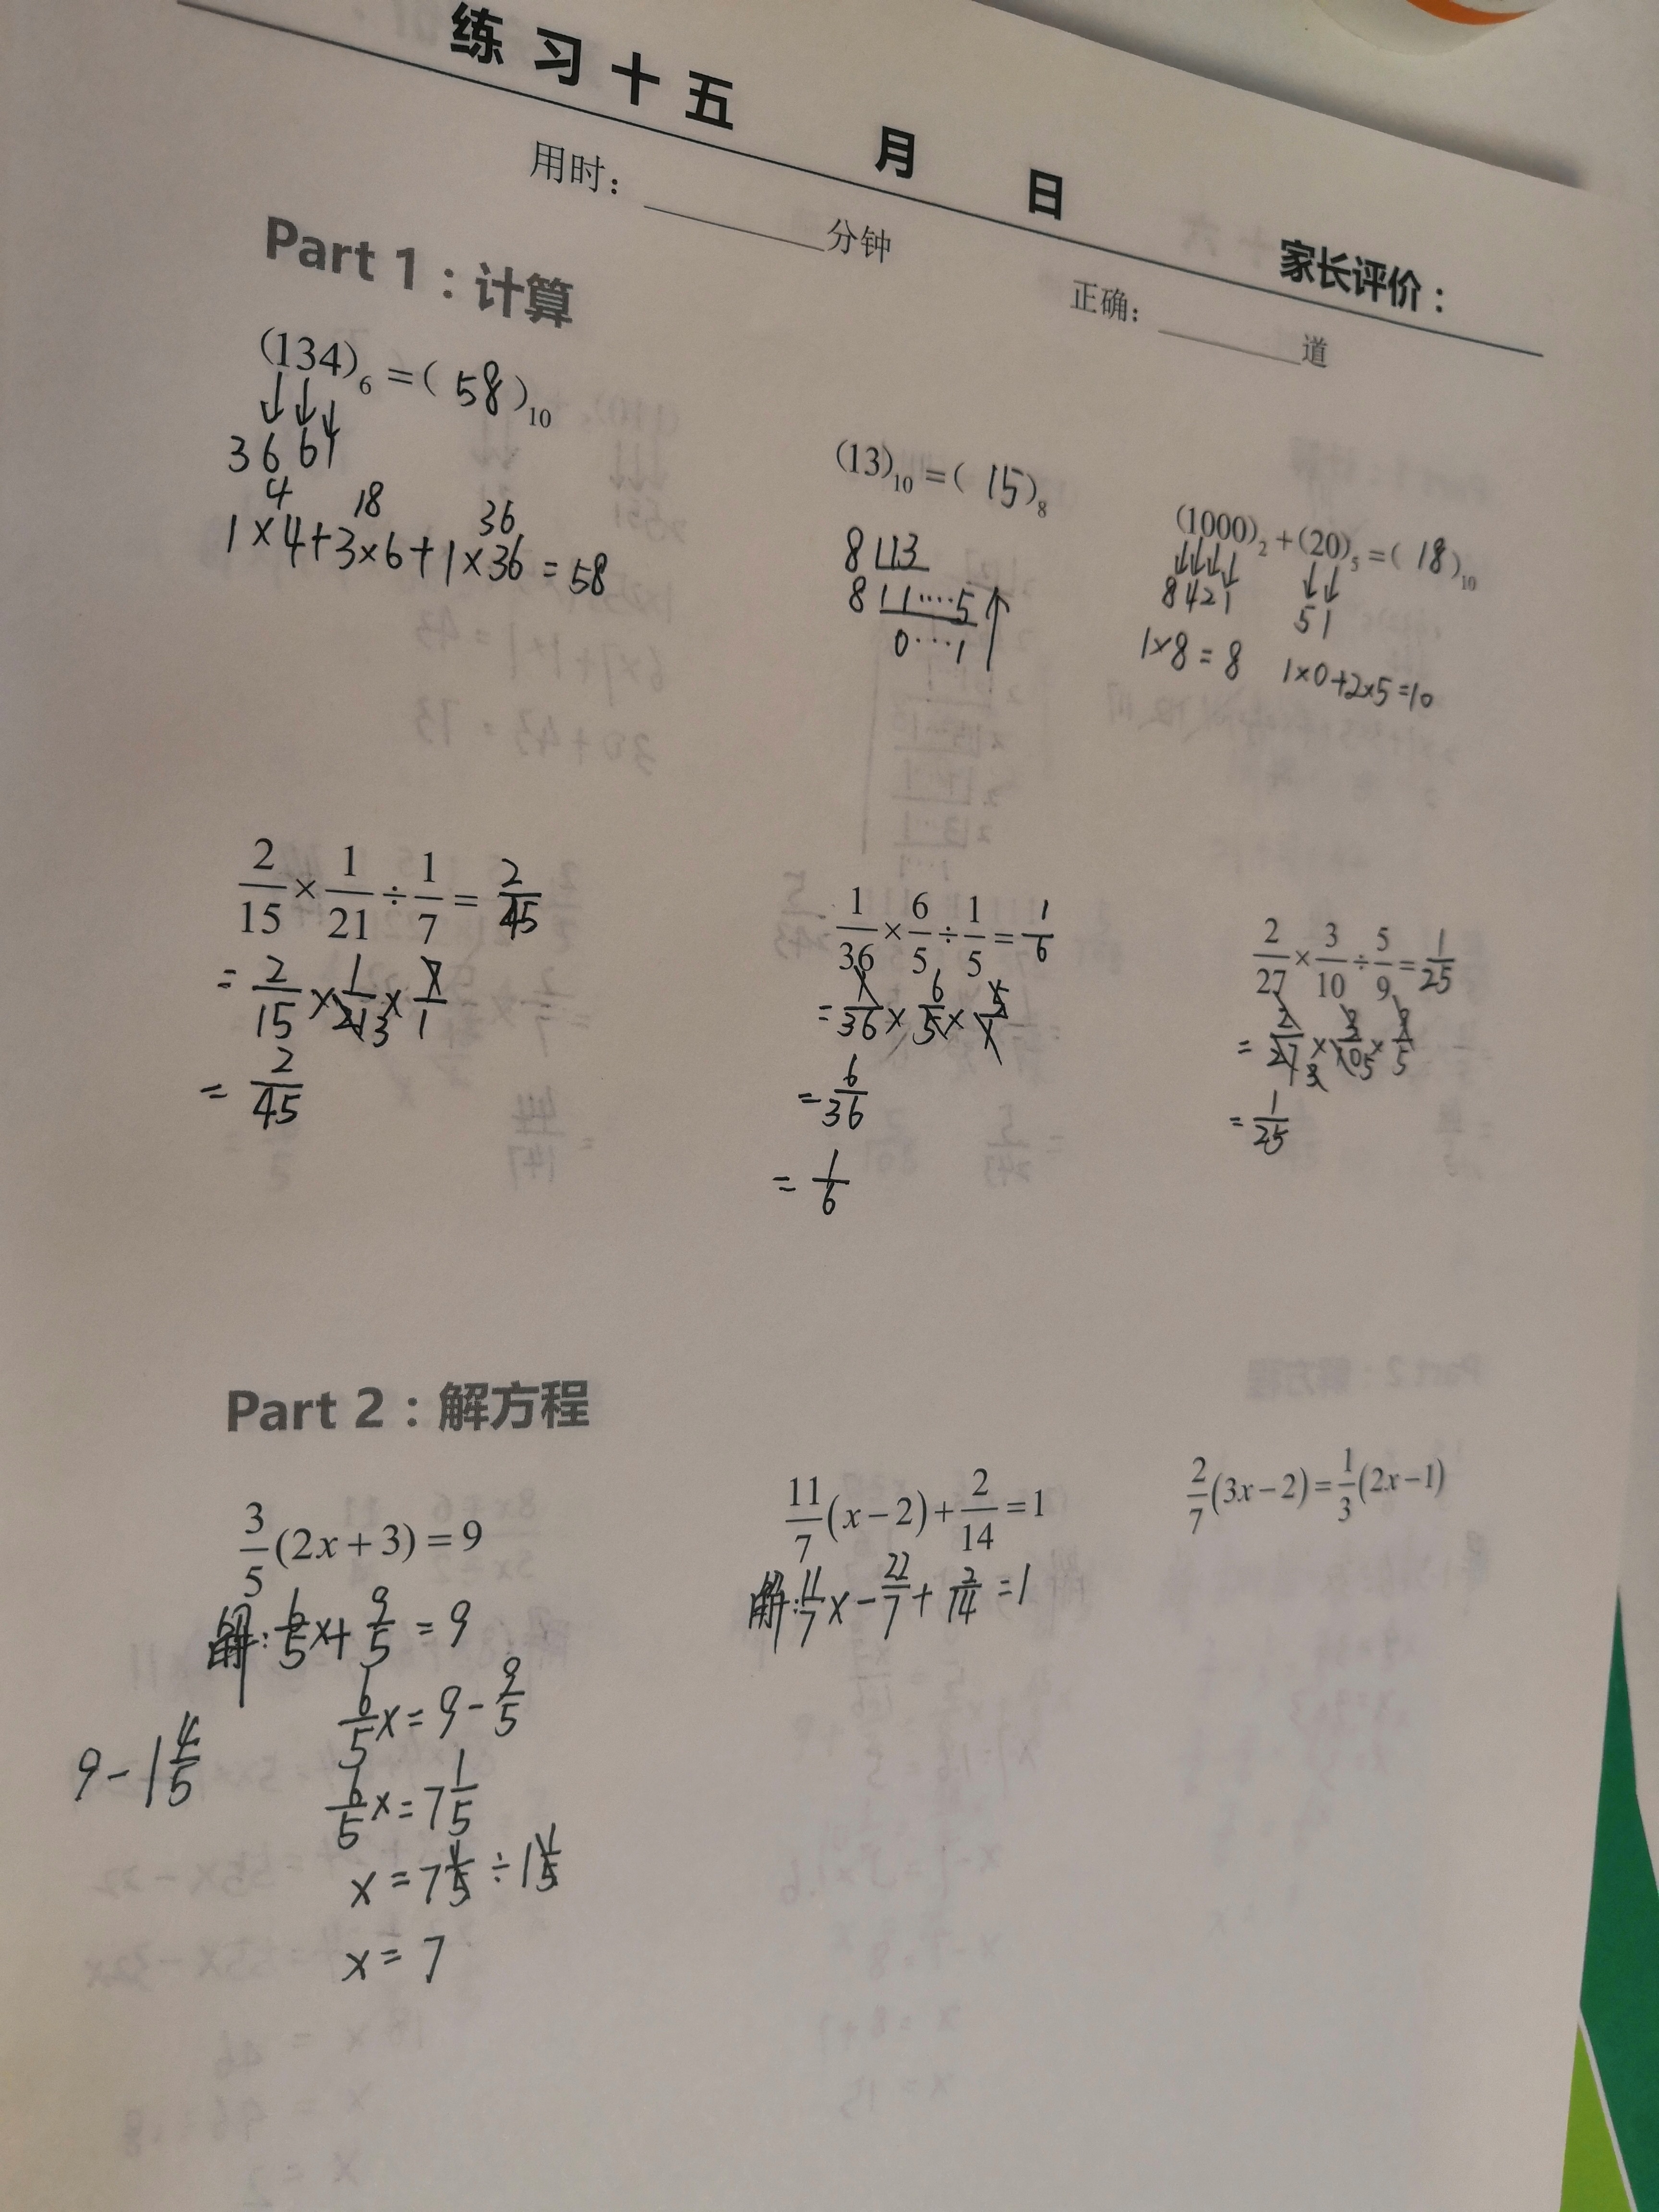 练习十五 月 日 家长评价：
用时：______分钟 正确：______道
Part 1：计算
(134)₆ =( 58 )₁₀
36 6 1
4 18 36
1×4+3×6+1×36=58
(13)₁₀ =( 15 )₈
8 13
8 1 1····5
0···1
(1000)₂+(20)₅=( 18 )₁₀
8 4 2 1 5 1
1×8=8 1×0+2×5=10
2/15 × 1/21 ÷ 1/7 = 2/45
= 2/15 × 1/21 3 × 7/1
= 2/45
1/36 × 6/5 ÷ 1/5 = 1/6
= 1/36 × 6/5 × 5/1
= 6/36
= 1/6
2/27 × 3/10 ÷ 5/9 = 1/25
= 2/27 3 × 3/10 5 × 9/5
= 1/25
Part 2：解方程
3/5(2x+3)=9
解：6/5x+9/5=9
6/5x=9-9/5
9-1 4/5
6/5x=7 1/5
x=7 1/5÷1 1/5
x=7
11/7(x-2)+2/14=1
解：11/7x-22/7+2/14=1
2/7(3x-2)=1/3(2x-1)